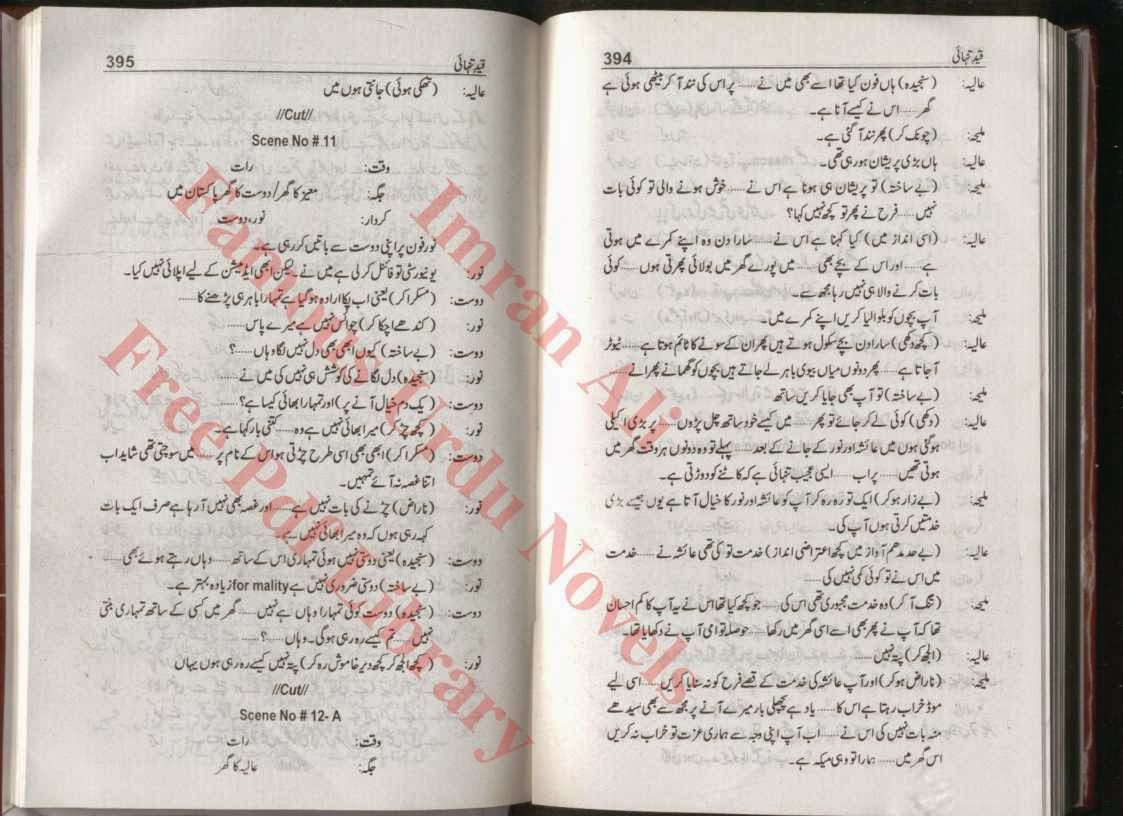 394
قیدِ تنہائی
عالیہ: (سنجیدہ) ہاں فون کیا تھا اسے بھی میں نے...... پر اس کی نند آ کر بیٹھی ہوئی ہے
گھر...... اس نے کیسے آنا ہے۔
ملیحہ: (چونک کر) پھر نند آ گئی ہے۔
عالیہ: ہاں بڑی پریشان ہو رہی تھی۔
ملیحہ: (بے ساختہ) تو پریشان ہی ہونا ہے اس نے...... خوش ہونے والی تو کوئی بات
نہیں...... فرح نے پھر تو کچھ نہیں کہا؟
عالیہ: (اسی انداز میں) کیا کہنا ہے اس نے...... سارا دن وہ اپنے کمرے میں ہوتی
ہے...... اور اس کے بچے بھی...... میں پورے گھر میں بولائی پھرتی ہوں...... کوئی
بات کرنے والا ہی نہیں رہا مجھ سے۔
ملیحہ: آپ بچوں کو بلوا لیا کریں اپنے کمرے میں۔
عالیہ: (کچھ دکھی) سارا دن بچے سکول ہوتے ہیں پھر ان کے سونے کا ٹائم ہوتا ہے...... ٹیوٹر
آ جاتا ہے...... پھر دونوں میاں بیوی باہر لے جاتے ہیں بچوں کو گھمانے پھرانے......
ملیحہ: (بے ساختہ) تو آپ بھی جایا کریں ساتھ
عالیہ: (دکھی) کوئی لے کر جائے تو پھر...... میں کیسے خود ساتھ چل پڑوں...... پر بڑی اکیلی
ہو گئی ہوں میں عائشہ اور نور کے جانے کے بعد...... پہلے تو وہ دونوں ہر وقت گھر میں
ہوتی تھیں...... پر اب...... ایسی عجیب تنہائی ہے کہ کاٹنے کو دوڑتی ہے۔
ملیحہ: (بے زار ہو کر) ایک تو رہ رہ کر آپ کو عائشہ اور نور کا خیال آتا ہے یوں جیسے بڑی
خدمتیں کرتی ہوں آپ کی۔
عالیہ: (بے حد مدھم آواز میں کچھ اعتراضی انداز) خدمت تو کی تھی عائشہ نے...... خدمت
میں اس نے تو کوئی کمی نہیں کی......
ملیحہ: (تنگ آ کر) وہ خدمت مجبوری تھی اس کی...... جو کچھ کیا تھا اس نے یہ آپ کا کم احسان
تھا کہ آپ نے پھر بھی اسے اسی گھر میں رکھا...... حوصلہ تو امی آپ نے دکھایا تھا۔
عالیہ: (الجھ کر) پتہ نہیں......
ملیحہ: (ناراض ہو کر) اور آپ عائشہ کی خدمت کے قصے فرح کو نہ سنایا کریں...... اسی لیے
موڈ خراب رہتا ہے اس کا...... یاد ہے پچھلی بار میرے آنے پر مجھ سے بھی سیدھے
منہ بات نہیں کی اس نے...... اب آپ اپنی وجہ سے ہماری عزت تو خراب نہ کریں
اس گھر میں...... ہمارا تو وہی میکہ ہے۔
395
قیدِ تنہائی
عالیہ: (تھکی ہوئی) جانتی ہوں میں
//Cut//
Scene No # 11
وقت: رات
جگہ: معیز کا گھر/دوست کا گھر پاکستان میں
کردار: نور، دوست
نور فون پر اپنی دوست سے باتیں کر رہی ہے۔
نور: یونیورسٹی تو فائنل کر لی ہے میں نے۔ لیکن ابھی ایڈمیشن کے لیے اپلائی نہیں کیا۔
دوست: (مسکرا کر) یعنی اب پکا ارادہ ہو گیا ہے تمہارا باہر ہی پڑھنے کا......
نور: (کندھے اچکا کر) چوائس نہیں ہے میرے پاس......
دوست: (بے ساختہ) کیوں ابھی بھی دل نہیں لگا وہاں......؟
نور: (سنجیدہ) دل لگانے کی کوشش ہی نہیں کی میں نے......
دوست: (یک دم خیال آنے پر) اور تمہارا بھائی کیسا ہے؟......
نور: (کچھ چڑ کر) میرا بھائی نہیں ہے وہ...... کتنی بار کہا ہے۔
دوست: (مسکرا کر) ابھی بھی اسی طرح چڑتی ہو اس کے نام پر...... میں سوچتی تھی شاید اب
اتنا غصہ نہ آئے تمہیں۔
نور: (ناراض) چڑنے کی بات نہیں ہے...... اور غصہ بھی نہیں آ رہا ہے صرف ایک بات
کہہ رہی ہوں کہ وہ میرا بھائی نہیں ہے۔
دوست: (سنجیدہ) یعنی دوستی نہیں ہوئی تمہاری اس کے ساتھ...... وہاں رہتے ہوئے بھی......
نور: (بے ساختہ) دوستی ضروری نہیں ہے for mality زیادہ بہتر ہے۔
دوست: (سنجیدہ) دوست کوئی تمہارا وہاں ہے نہیں...... گھر میں کسی کے ساتھ تمہاری بنتی
نہیں...... تم کیسے رہ رہی ہو گی۔ وہاں......؟
نور: (کچھ الجھ کر کچھ دیر خاموش رہ کر) پتہ نہیں کیسے رہ رہی ہوں یہاں
//Cut//
Scene No # 12- A
وقت: رات
جگہ: عالیہ کا گھر
Imran Ali
Famous Urdu Novels
Free Pdf Library